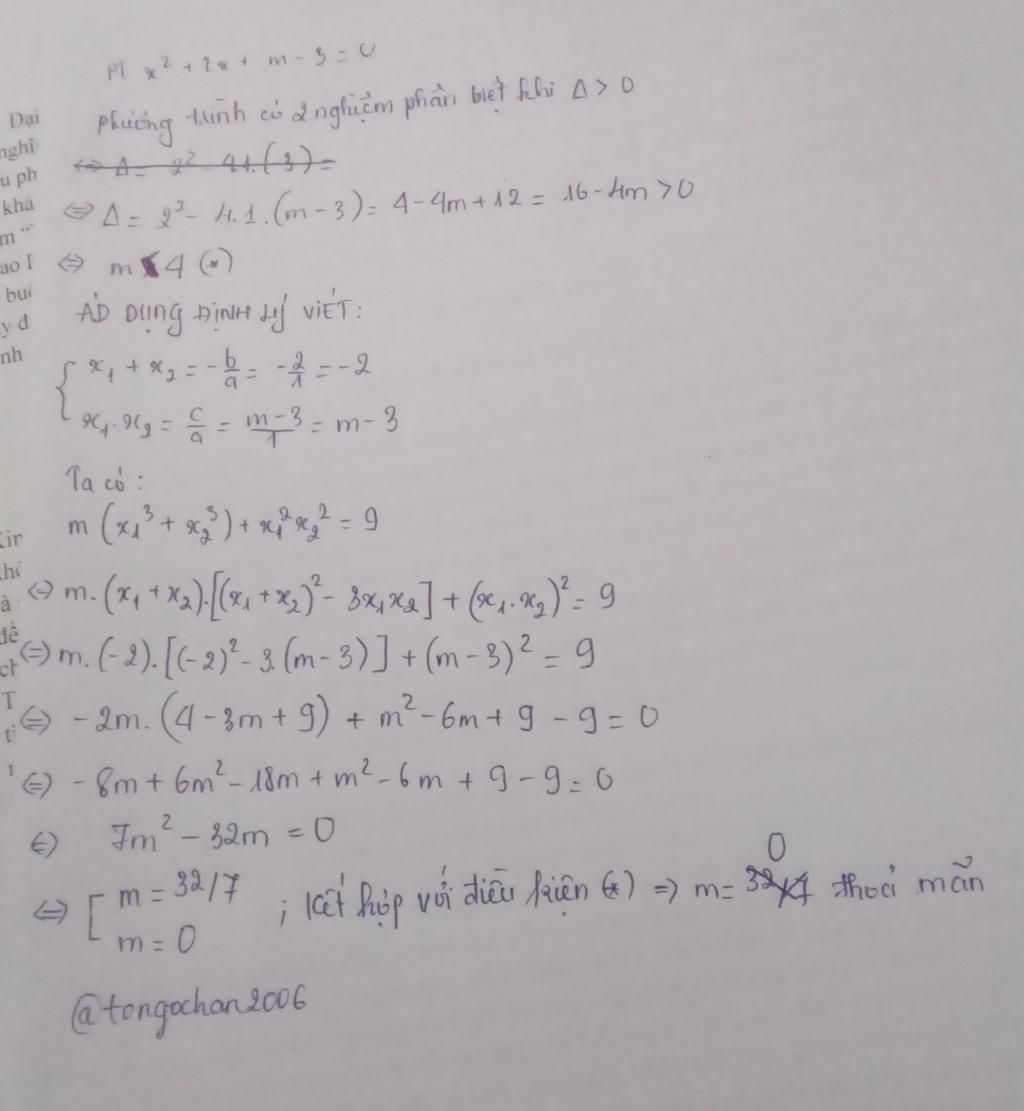 PT x² + 2x + m - 3 = 0
Phương trình có 2 nghiệm phân biệt khi Δ > 0
⇔ Δ = 2² - 4.1.(3) =
⇔ Δ = 2² - 4.1.(m - 3) = 4 - 4m + 12 = 16 - 4m > 0
⇔ m < 4 (*)
ÁD DỤNG ĐỊNH LÝ VIÉT:
{ x₁ + x₂ = -b/a = -2/1 = -2
x₁.x₂ = c/a = (m-3)/1 = m - 3
Ta có:
m (x₁³ + x₂³) + x₁²x₂² = 9
⇔ m.(x₁ + x₂).[(x₁ + x₂)² - 3x₁x₂] + (x₁.x₂)² = 9
⇔ m.(-2).[(-2)² - 3.(m - 3)] + (m - 3)² = 9
⇔ -2m.(4 - 3m + 9) + m² - 6m + 9 - 9 = 0
⇔ -8m + 6m² - 18m + m² - 6m + 9 - 9 = 0
⇔ 7m² - 32m = 0
⇔ [ m = 32/7
m = 0
; kết hợp với điều kiện (*) ⇒ m = 32/7 0 thoả mãn
@tongochan2006
Dại
nghĩ
u ph
khá
m "
ao l
y đ
nh
à
đề
ch
T